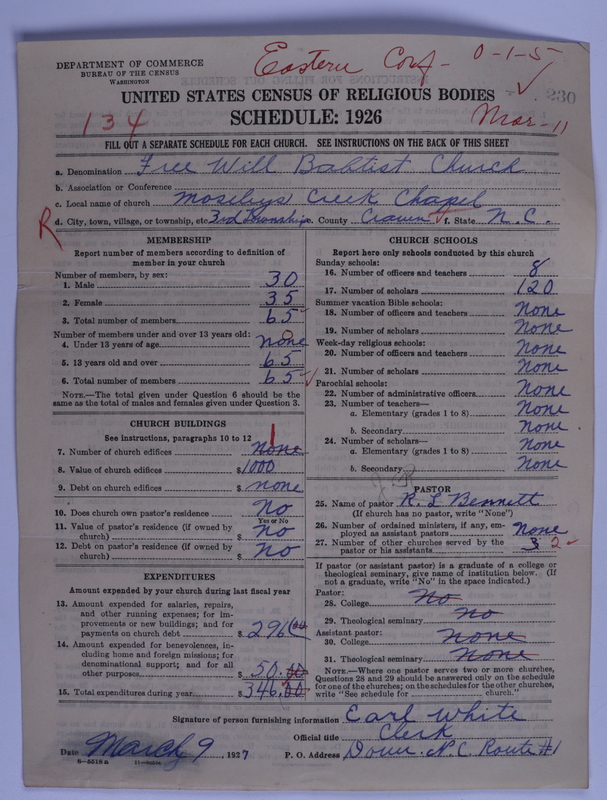 DEPARTMENT OF COMMERCE
BUREAU OF THE CENSUS
WASHINGTON
Eastern Conf - 0-1-5
UNITED STATES CENSUS OF RELIGIOUS BODIES
230
134
SCHEDULE: 1926
Mar-11
FILL OUT A SEPARATE SCHEDULE FOR EACH CHURCH. SEE INSTRUCTIONS ON THE BACK OF THIS SHEET
a. Denomination Free Will Babtist Church
b. Association or Conference
c. Local name of church Moseleys Creek Chapel
R
d. City, town, village, or township, etc. 3rd Township e. County Craven f. State N. C.
MEMBERSHIP
Report number of members according to definition of
member in your church
Number of members, by sex:
1. Male 30
2. Female 35
3. Total number of members 65
Number of members under and over 13 years old:
4. Under 13 years of age none
5. 13 years old and over 65
6. Total number of members 65
NOTE.—The total given under Question 6 should be
same as the total of males and females given under Question 3.
CHURCH BUILDINGS
See instructions, paragraphs 10 to 12
1
7. Number of church edifices none
8. Value of church edifices $1000
9. Debt on church edifices $ none
10. Does church own pastor's residence No
Yes or No
11. Value of pastor's residence (if owned by
church) $ No
12. Debt on pastor's residence (if owned by
church) $ No
EXPENDITURES
Amount expended by your church during last fiscal year
13. Amount expended for salaries, repairs,
and other running expenses; for im-
provements or new buildings; and for
payments on church debt $ 296.00
14. Amount expended for benevolences, in-
cluding home and foreign missions; for
denominational support; and for all
other purposes $ 50.00
15. Total expenditures during year $ 346.00
CHURCH SCHOOLS
Report here only schools conducted by this church
Sunday schools:
16. Number of officers and teachers 8
17. Number of scholars 120
Summer vacation Bible schools:
18. Number of officers and teachers None
19. Number of scholars None
Week-day religious schools:
20. Number of officers and teachers None
21. Number of scholars None
Parochial schools:
22. Number of administrative officers None
23. Number of teachers—
a. Elementary (grades 1 to 8) None
b. Secondary None
24. Number of scholars—
a. Elementary (grades 1 to 8) None
b. Secondary None
PASTOR
25. Name of pastor R. L. Bennett
(If church has no pastor, write "None")
26. Number of ordained ministers, if any, em-
ployed as assistant pastors None
27. Number of other churches served by the
pastor or his assistants 3 2
If pastor (or assistant pastor) is a graduate of a college or
theological seminary, give name of institution below. (If
not a graduate, write "No" in the space indicated.)
Pastor:
28. College No
29. Theological seminary No
Assistant pastor:
30. College None
31. Theological seminary None
NOTE.—Where one pastor serves two or more churches,
Questions 28 and 29 should be answered only on the schedule
for one of the churches; on the schedules for the other churches,
write "See schedule for church."
Signature of person furnishing information Earl White
Official title Clerk
Date March 9, 1927 P. O. Address Dover N. C. Route #1